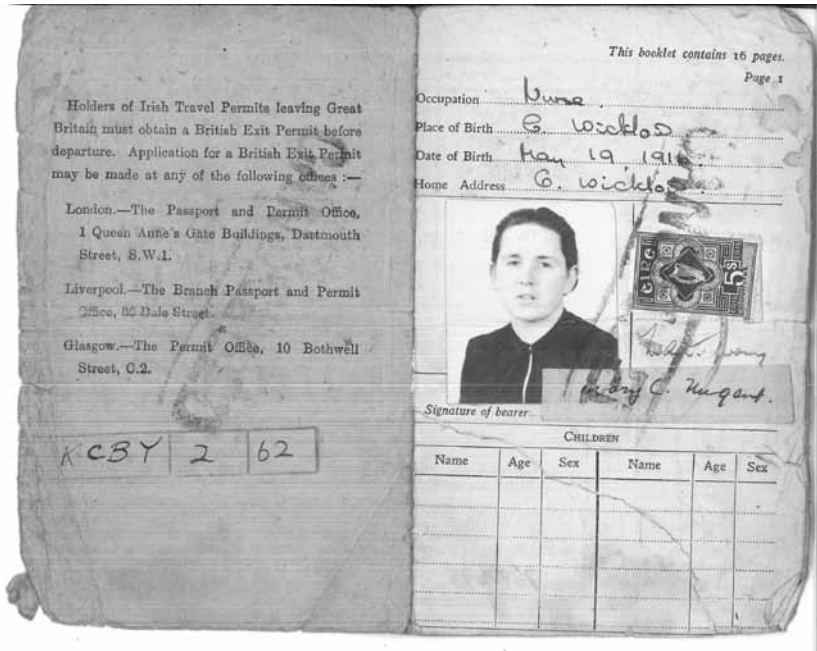 Holders of Irish Travel Permits leaving Great
Britain must obtain a British Exit Permit before
departure. Application for a British Exit Permit
may be made at any of the following offices :—
London.—The Passport and Permit Office,
1 Queen Anne's Gate Buildings, Dartmouth
Street, S.W.1.
Liverpool.—The Branch Passport and Permit
Office, 36 Dale Street.
Glasgow.—The Permit Office, 10 Bothwell
Street, C.2.
K CBY 2 62
This booklet contains 16 pages.
Page 1
Occupation Nurse
Place of Birth Co. Wicklow
Date of Birth May 19 191
Home Address Co. Wicklow
EIRE 5s
Mary C. Nugent.
Signature of bearer
CHILDREN
Name Age Sex Name Age Sex